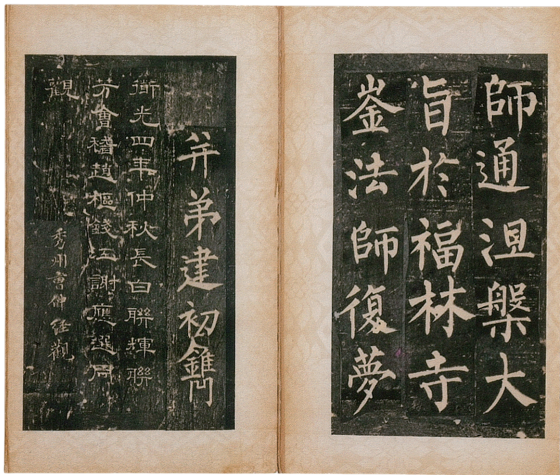 師通涅槃大
旨於福林寺
崟法師復夢
并弟建初鐫
衜光四年仲秋長白聯輝聯
芳會稽趙樞錢江謝應選同
觀
秀州曾仲經觀